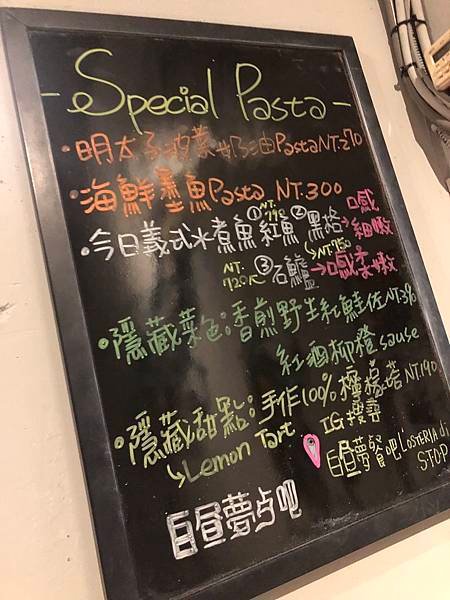 - Special Pasta -
• 明太子波菜奶油Pasta NT.270
• 海鮮墨魚Pasta NT.300
• 今日義式水煮魚 ①紅魚 ②黑格 → 口感細嫩
NT. NT.750
NT. 720元 ③石鱸 → 口感柔嫩
• 隱藏菜色:香煎野生紅鮭佐 NT.390
紅酒柳橙sause
• 隱藏甜點:手作100%檸檬塔 NT.190
↳ Lemon Tart
IG搜尋
白昼夢餐吧 L'OSTERIA di STOP
白昼夢占吧